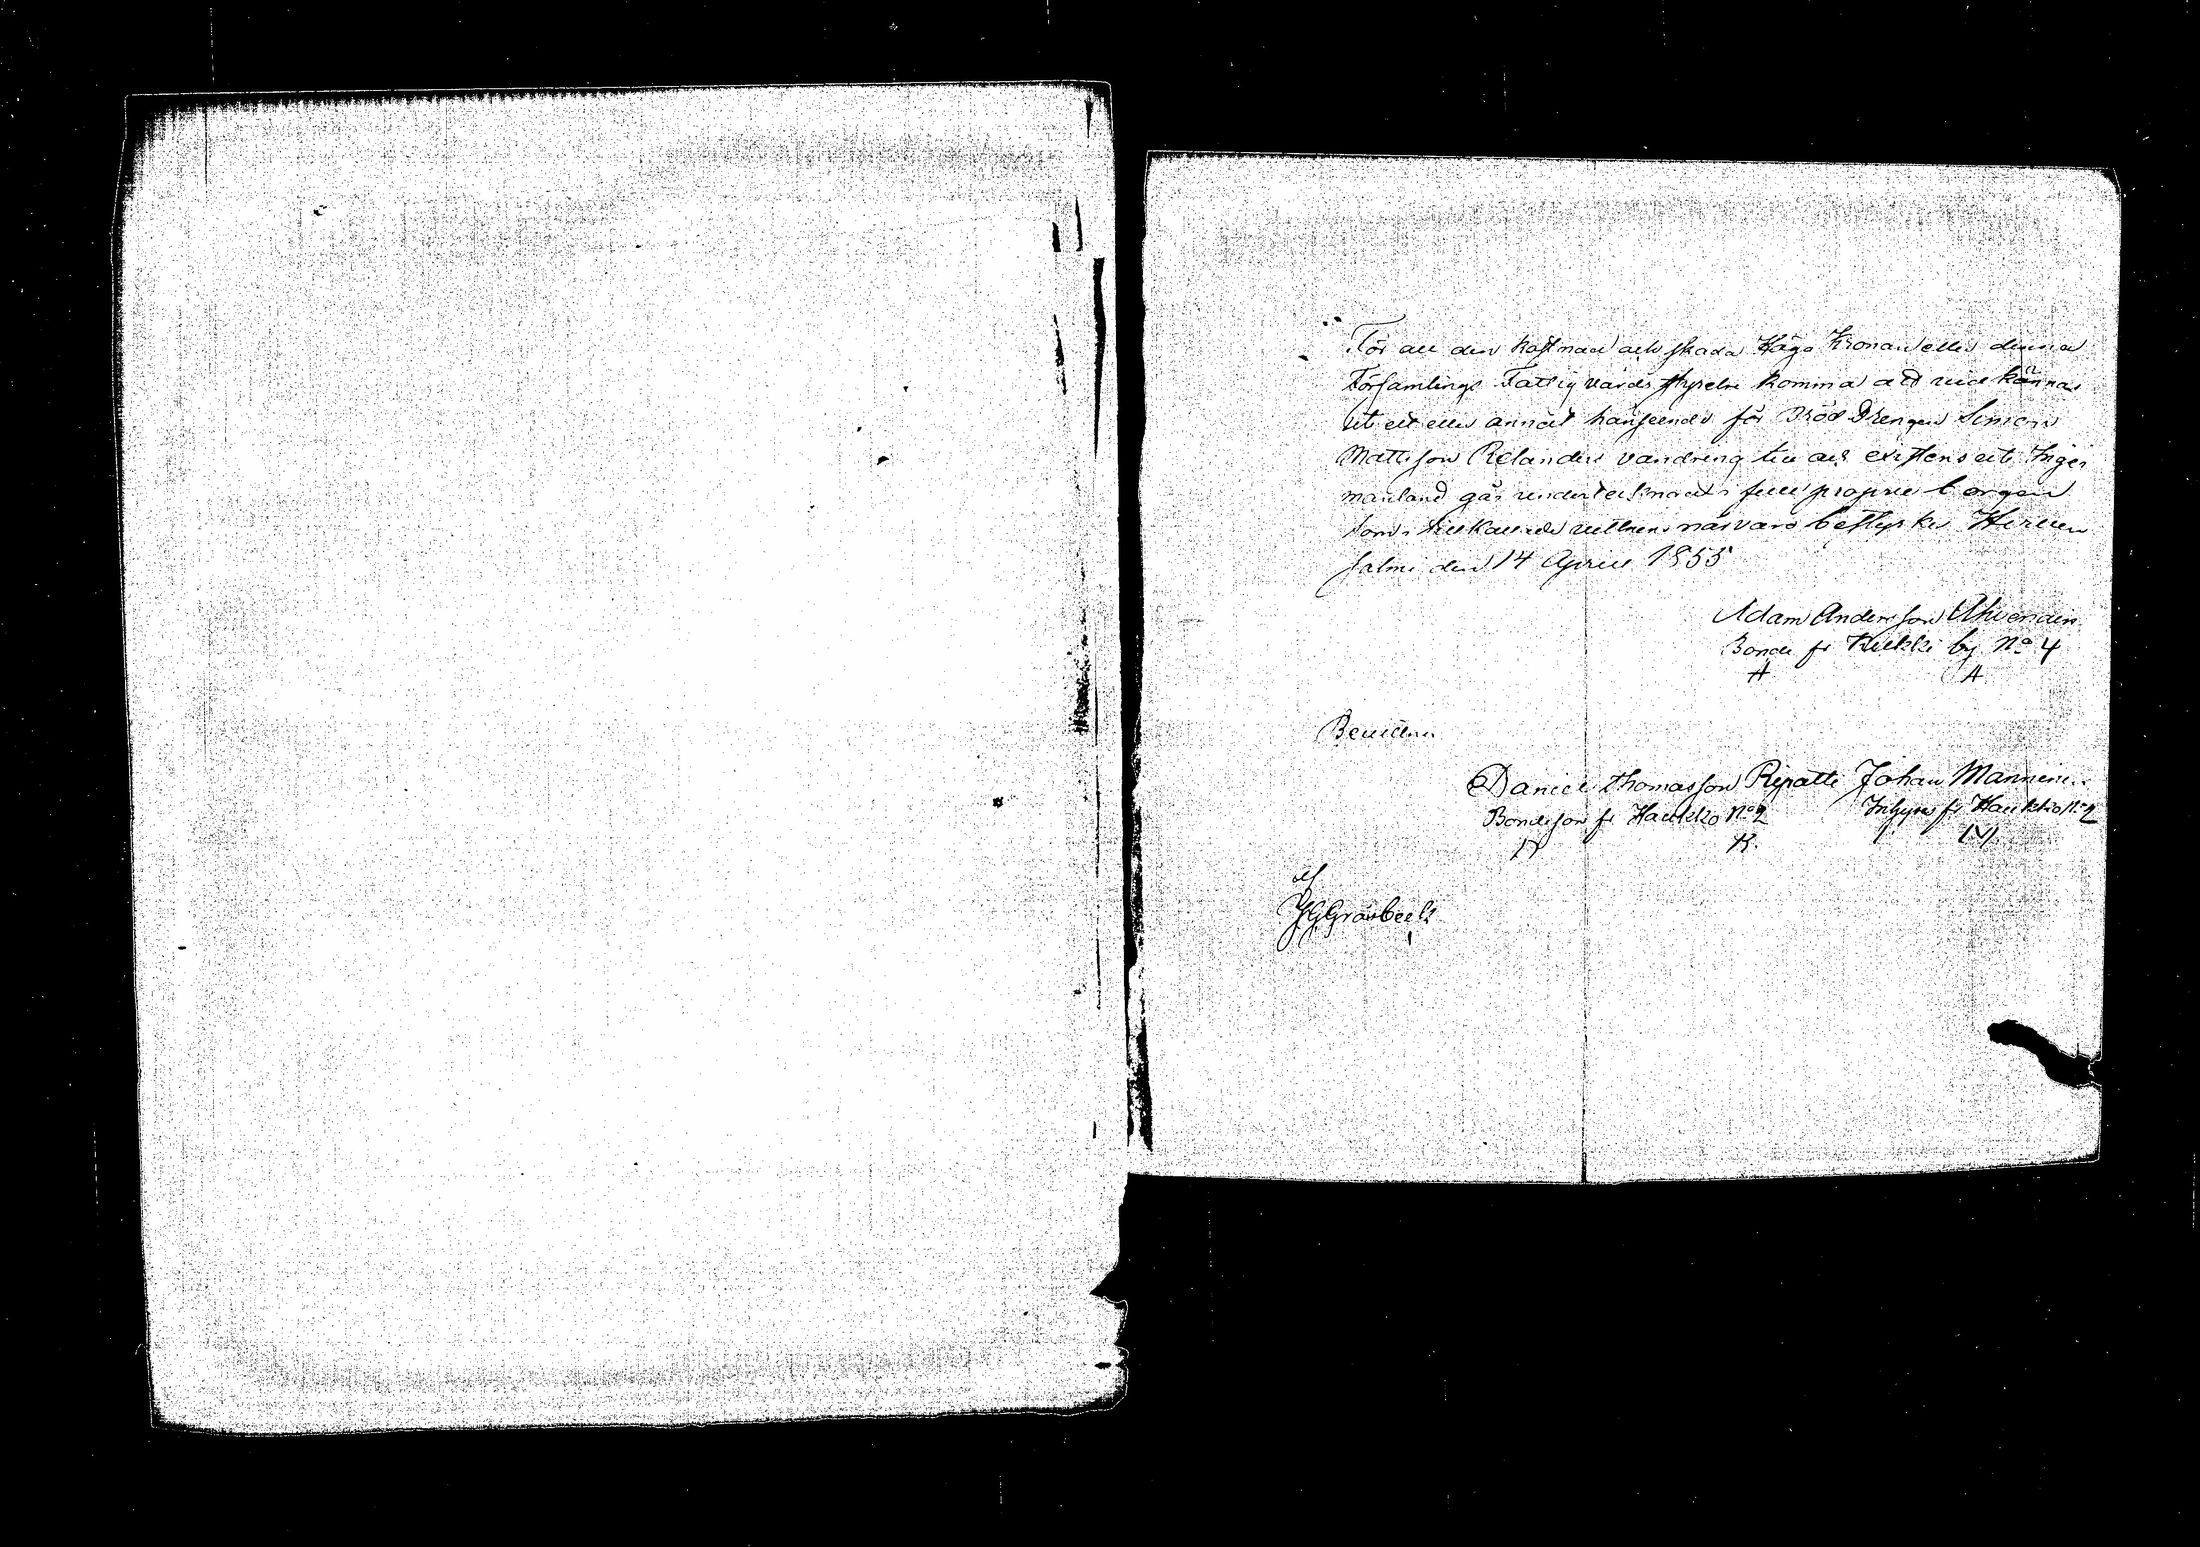 För all den kostnad och skada Höga Kronan eller denna
Församlings Fattigvårds styrelse komma att vidkännas
uti ett eller annat hänseende för Bröd Drengen Simon
Mattsson Relanders vandring till och existens uti Inger
manland går undertecknad i full proprie borgen
som i tillkallade vittnens närvaro bestyrkes Hirven
salmi den 14 April 1855
Adam Andersson Ahvenainen
Bonde fr Kilkki by No 4
A A
Bevittna
Daniel Thomasson Repatti Johan Manninen
Bondeson fr Haukko No 2 Inhyses fr Haukkio No 2
R. M.
af
J G Gråsbeck